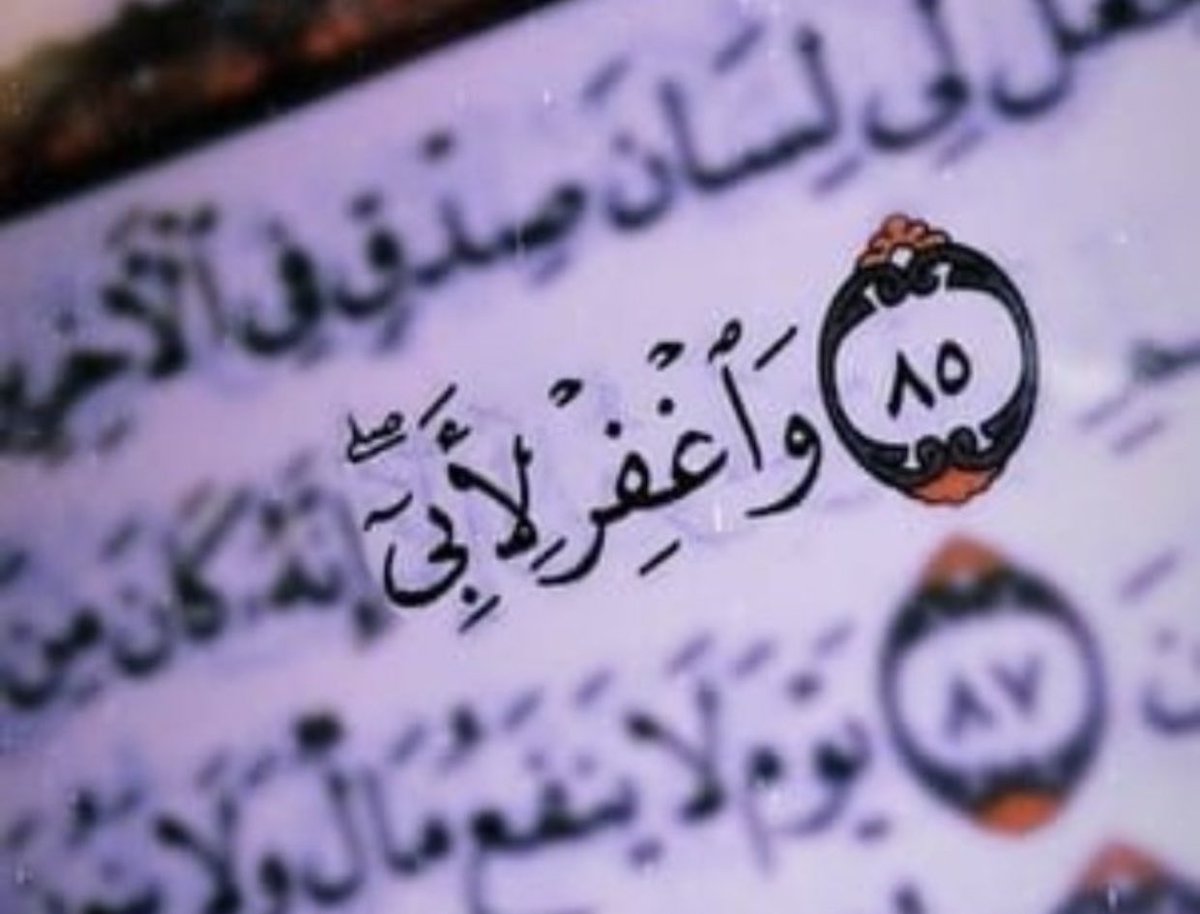 لِّى لِسَانَ صِدْقٍ فِى ٱلْأَخِرِ
٨٥ وَٱغْفِرْ لِأَبِىٓ ۖ إِنَّهُۥ كَانَ مِنَ
٨٧ يَوْمَ لَا يَنفَعُ مَالٌ وَلَا